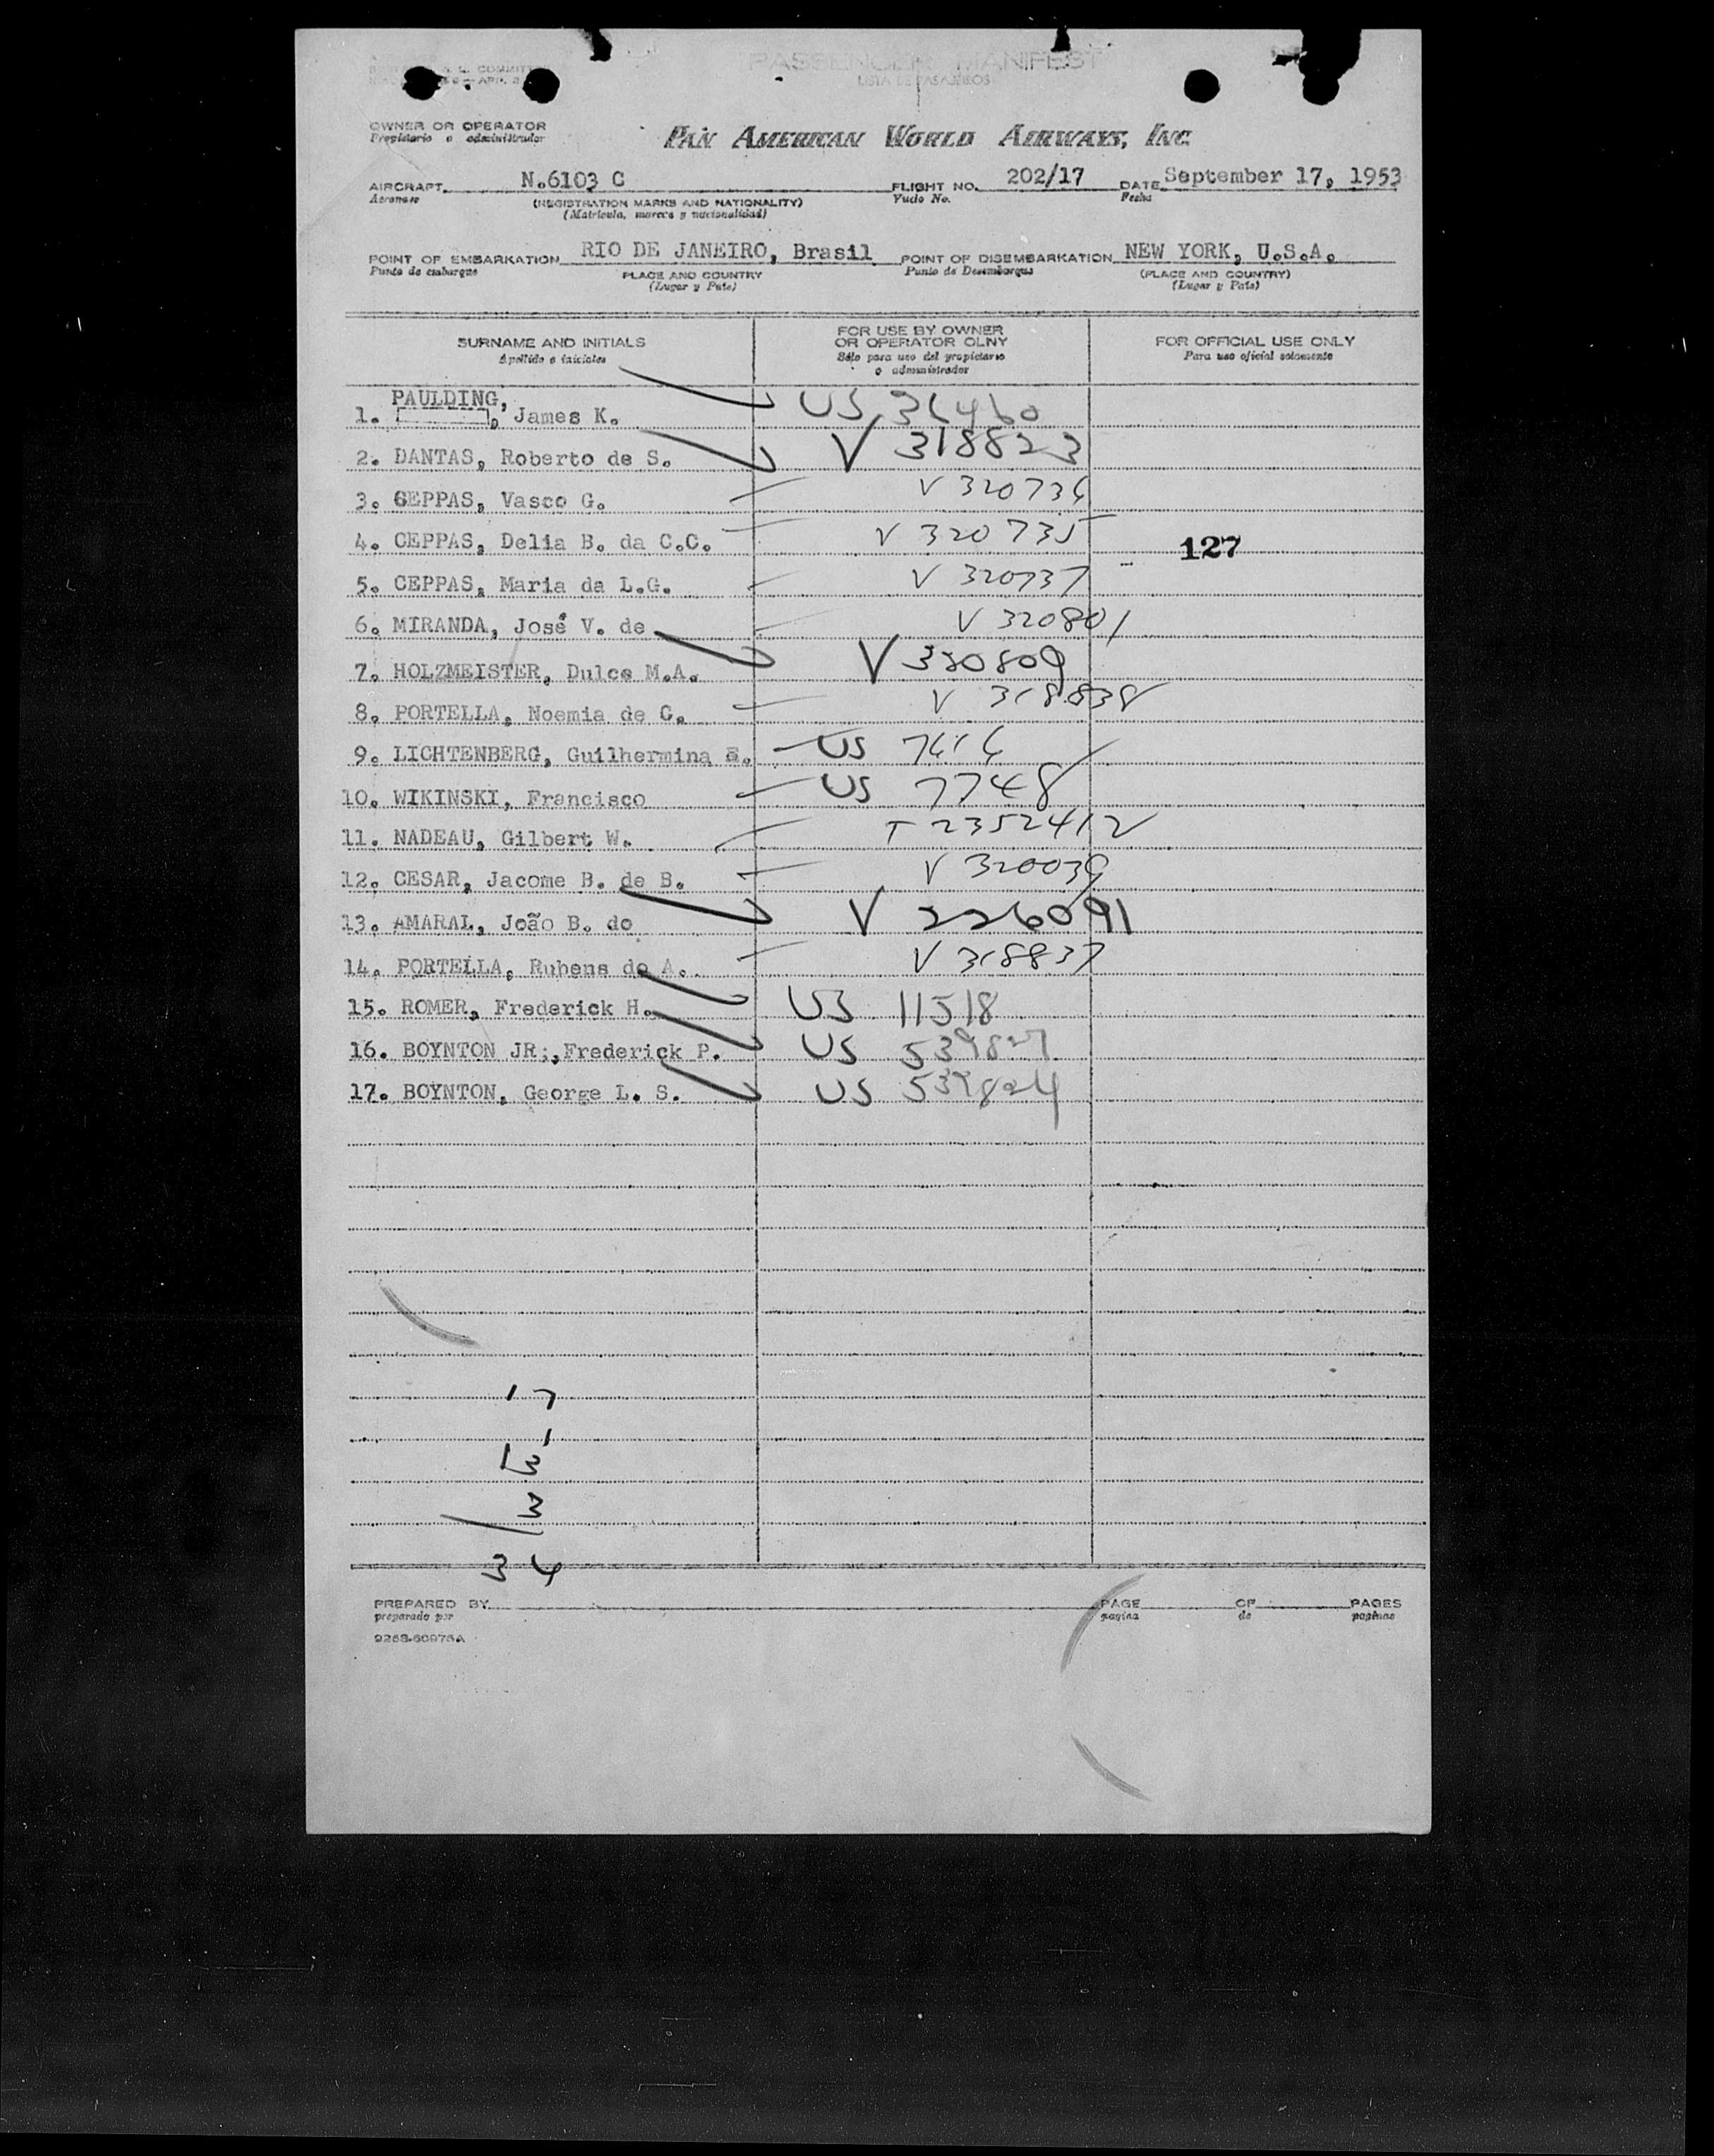 PASSENGER MANIFEST
LISTA DE PASAJEROS
OWNER OR OPERATOR
Propietario o administrador
PAN AMERICAN WORLD AIRWAYS, INC
AIRCRAFT N.6103 C FLIGHT NO. 202/17 DATE September 17, 1953
Aeronave (REGISTRATION MARKS AND NATIONALITY) Vuelo No. Fecha
(Matricula, marcas y nacionalidad)
POINT OF EMBARKATION RIO DE JANEIRO, Brasil POINT OF DISEMBARKATION NEW YORK, U.S.A.
Punto de embarque PLACE AND COUNTRY Punto de Desembarque (PLACE AND COUNTRY)
(Lugar y Pais) (Lugar y Pais)
SURNAME AND INITIALS FOR USE BY OWNER OR OPERATOR OLNY FOR OFFICIAL USE ONLY
Apellido e iniciales Sólo para uso del propietario o administrador Para uso oficial solamente
PAULDING,
1. , James K. US 36460
2. DANTAS, Roberto de S. V 318823
3. CEPPAS, Vasco G. V 320736
4. CEPPAS, Delia B. da C.C. V 320735
127
5. CEPPAS, Maria da L.G. V 320737
6. MIRANDA, José V. de V 320801
7. HOLZMEISTER, Dulce M.A. V 320809
8. PORTELLA, Noemia de C. V 318838
9. LICHTENBERG, Guilhermina US 7616
10. WIKINSKI, Francisco US 7748
11. NADEAU, Gilbert W. T 2352412
12. CESAR, Jacome B. de B. V 320039
13. AMARAL, João B. do V 226091
14. PORTELLA, Rubens de A. V 318837
15. ROMER, Frederick H. US 11518
16. BOYNTON JR;,Frederick P. US 539827
17. BOYNTON, George L. S. US 539824
17
1
13
3
34
PREPARED BY PAGE OF PAGES
preparado por pagina de paginas
9268-60975A